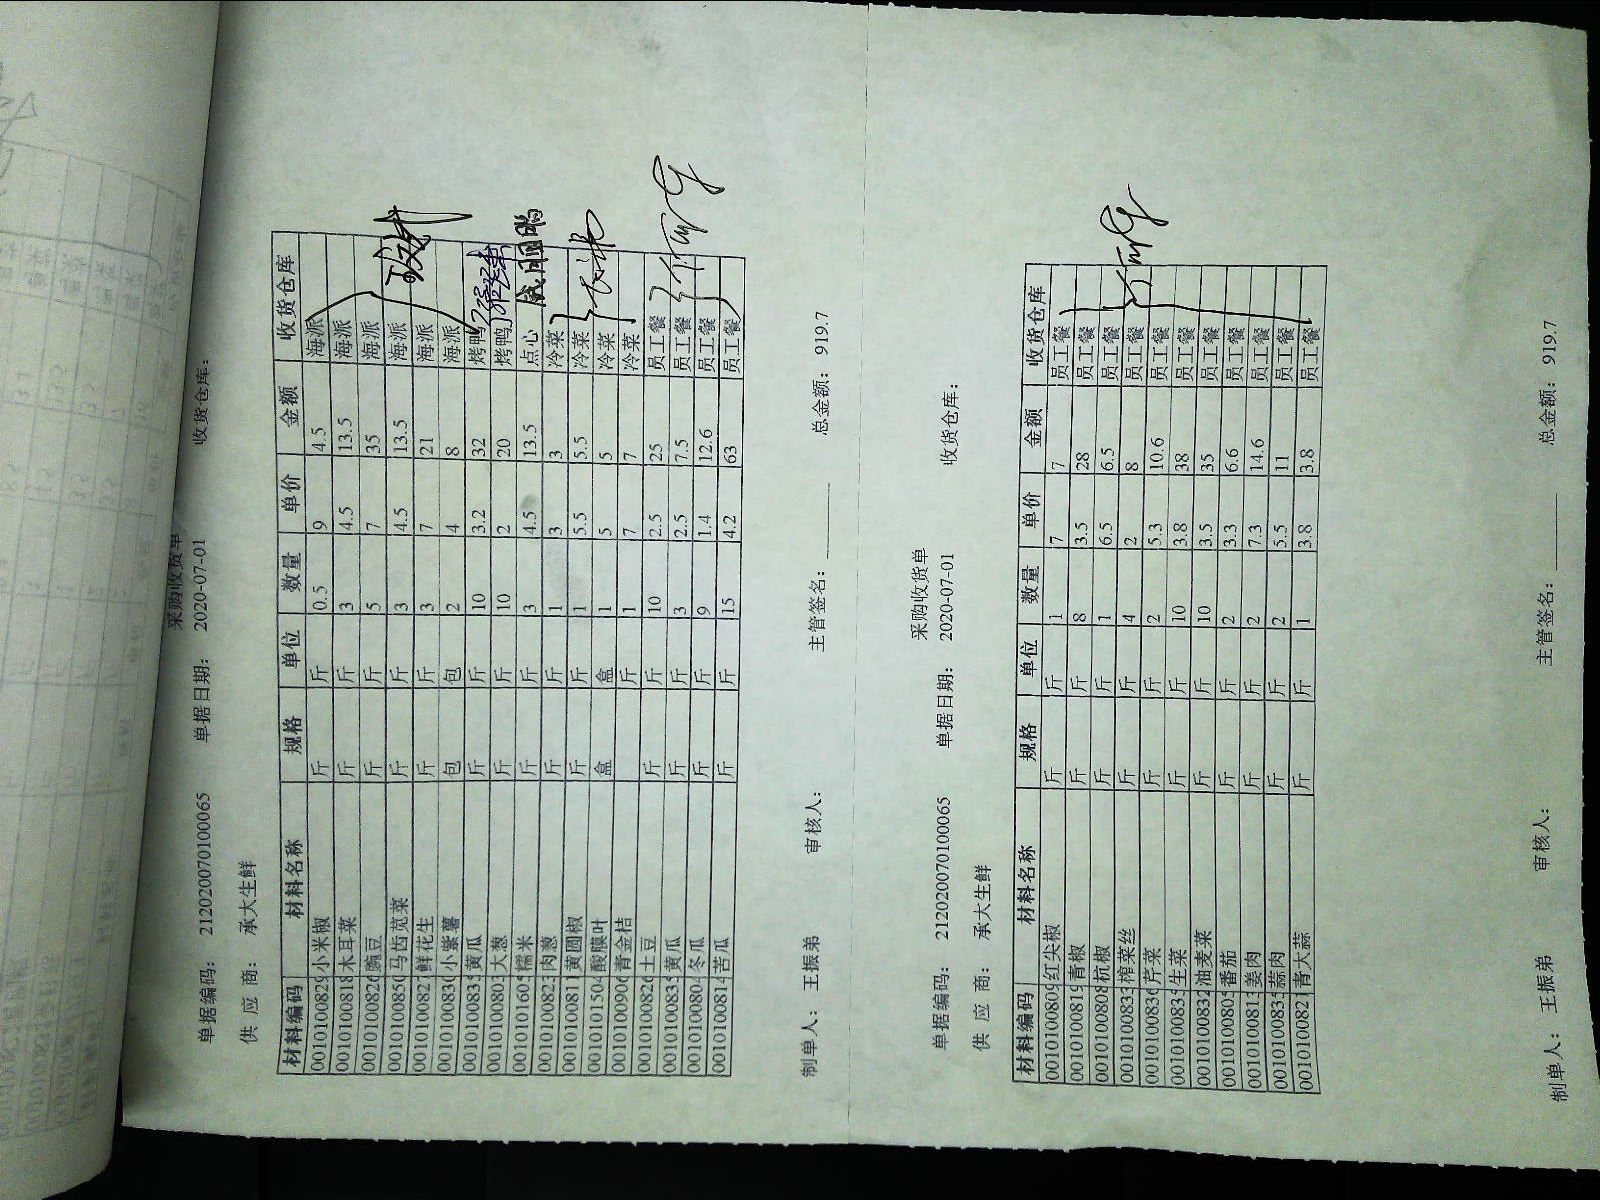 采购收货单
单据编码: 212020070100065 单据日期: 2020-07-01 收货仓库:
供 应 商: 承大生鲜
材料编码 材料名称 规格 单位 数量 单价 金额 收货仓库
0010100829 小米椒 斤 斤 0.5 9 4.5 海派
0010100818 木耳菜 斤 斤 3 4.5 13.5 海派
0010100820 豌豆 斤 斤 5 7 35 海派
0010100850 马齿苋菜 斤 斤 3 4.5 13.5 海派
0010100827 鲜花生 斤 斤 3 7 21 海派
0010100830 小紫薯 包 包 2 4 8 海派
0010100835 黄瓜 斤 斤 10 3.2 32 烤鸭
0010100803 大葱 斤 斤 10 2 20 烤鸭
0010101605 糯米 斤 斤 3 4.5 13.5 点心
0010100823 肉葱 斤 斤 1 3 3 冷菜
0010100811 黄圆椒 斤 斤 1 5.5 5.5 冷菜
0010101504 酸膜叶 盒 盒 1 5 5 冷菜
0010100906 青金桔 斤 1 7 7 冷菜
0010100826 土豆 斤 斤 10 2.5 25 员工餐
0010100835 黄瓜 斤 斤 3 2.5 7.5 员工餐
0010100804 冬瓜 斤 斤 9 1.4 12.6 员工餐
0010100814 苦瓜 斤 斤 15 4.2 63 员工餐
制单人: 王振弟 审核人: 主管签名: 总金额: 919.7
采购收货单
单据编码: 212020070100065 单据日期: 2020-07-01 收货仓库:
供 应 商: 承大生鲜
材料编码 材料名称 规格 单位 数量 单价 金额 收货仓库
0010100809 红尖椒 斤 斤 1 7 7 员工餐
0010100819 青椒 斤 斤 8 3.5 28 员工餐
0010100808 杭椒 斤 斤 1 6.5 6.5 员工餐
0010100833 榨菜丝 斤 斤 4 2 8 员工餐
0010100836 芹菜 斤 斤 2 5.3 10.6 员工餐
0010100834 生菜 斤 斤 10 3.8 38 员工餐
0010100832 油麦菜 斤 斤 10 3.5 35 员工餐
0010100805 番茄 斤 斤 2 3.3 6.6 员工餐
0010100813 姜肉 斤 斤 2 7.3 14.6 员工餐
0010100835 蒜肉 斤 斤 2 5.5 11 员工餐
0010100821 青大蒜 斤 斤 1 3.8 3.8 员工餐
制单人: 王振弟 审核人: 主管签名: 总金额: 919.7